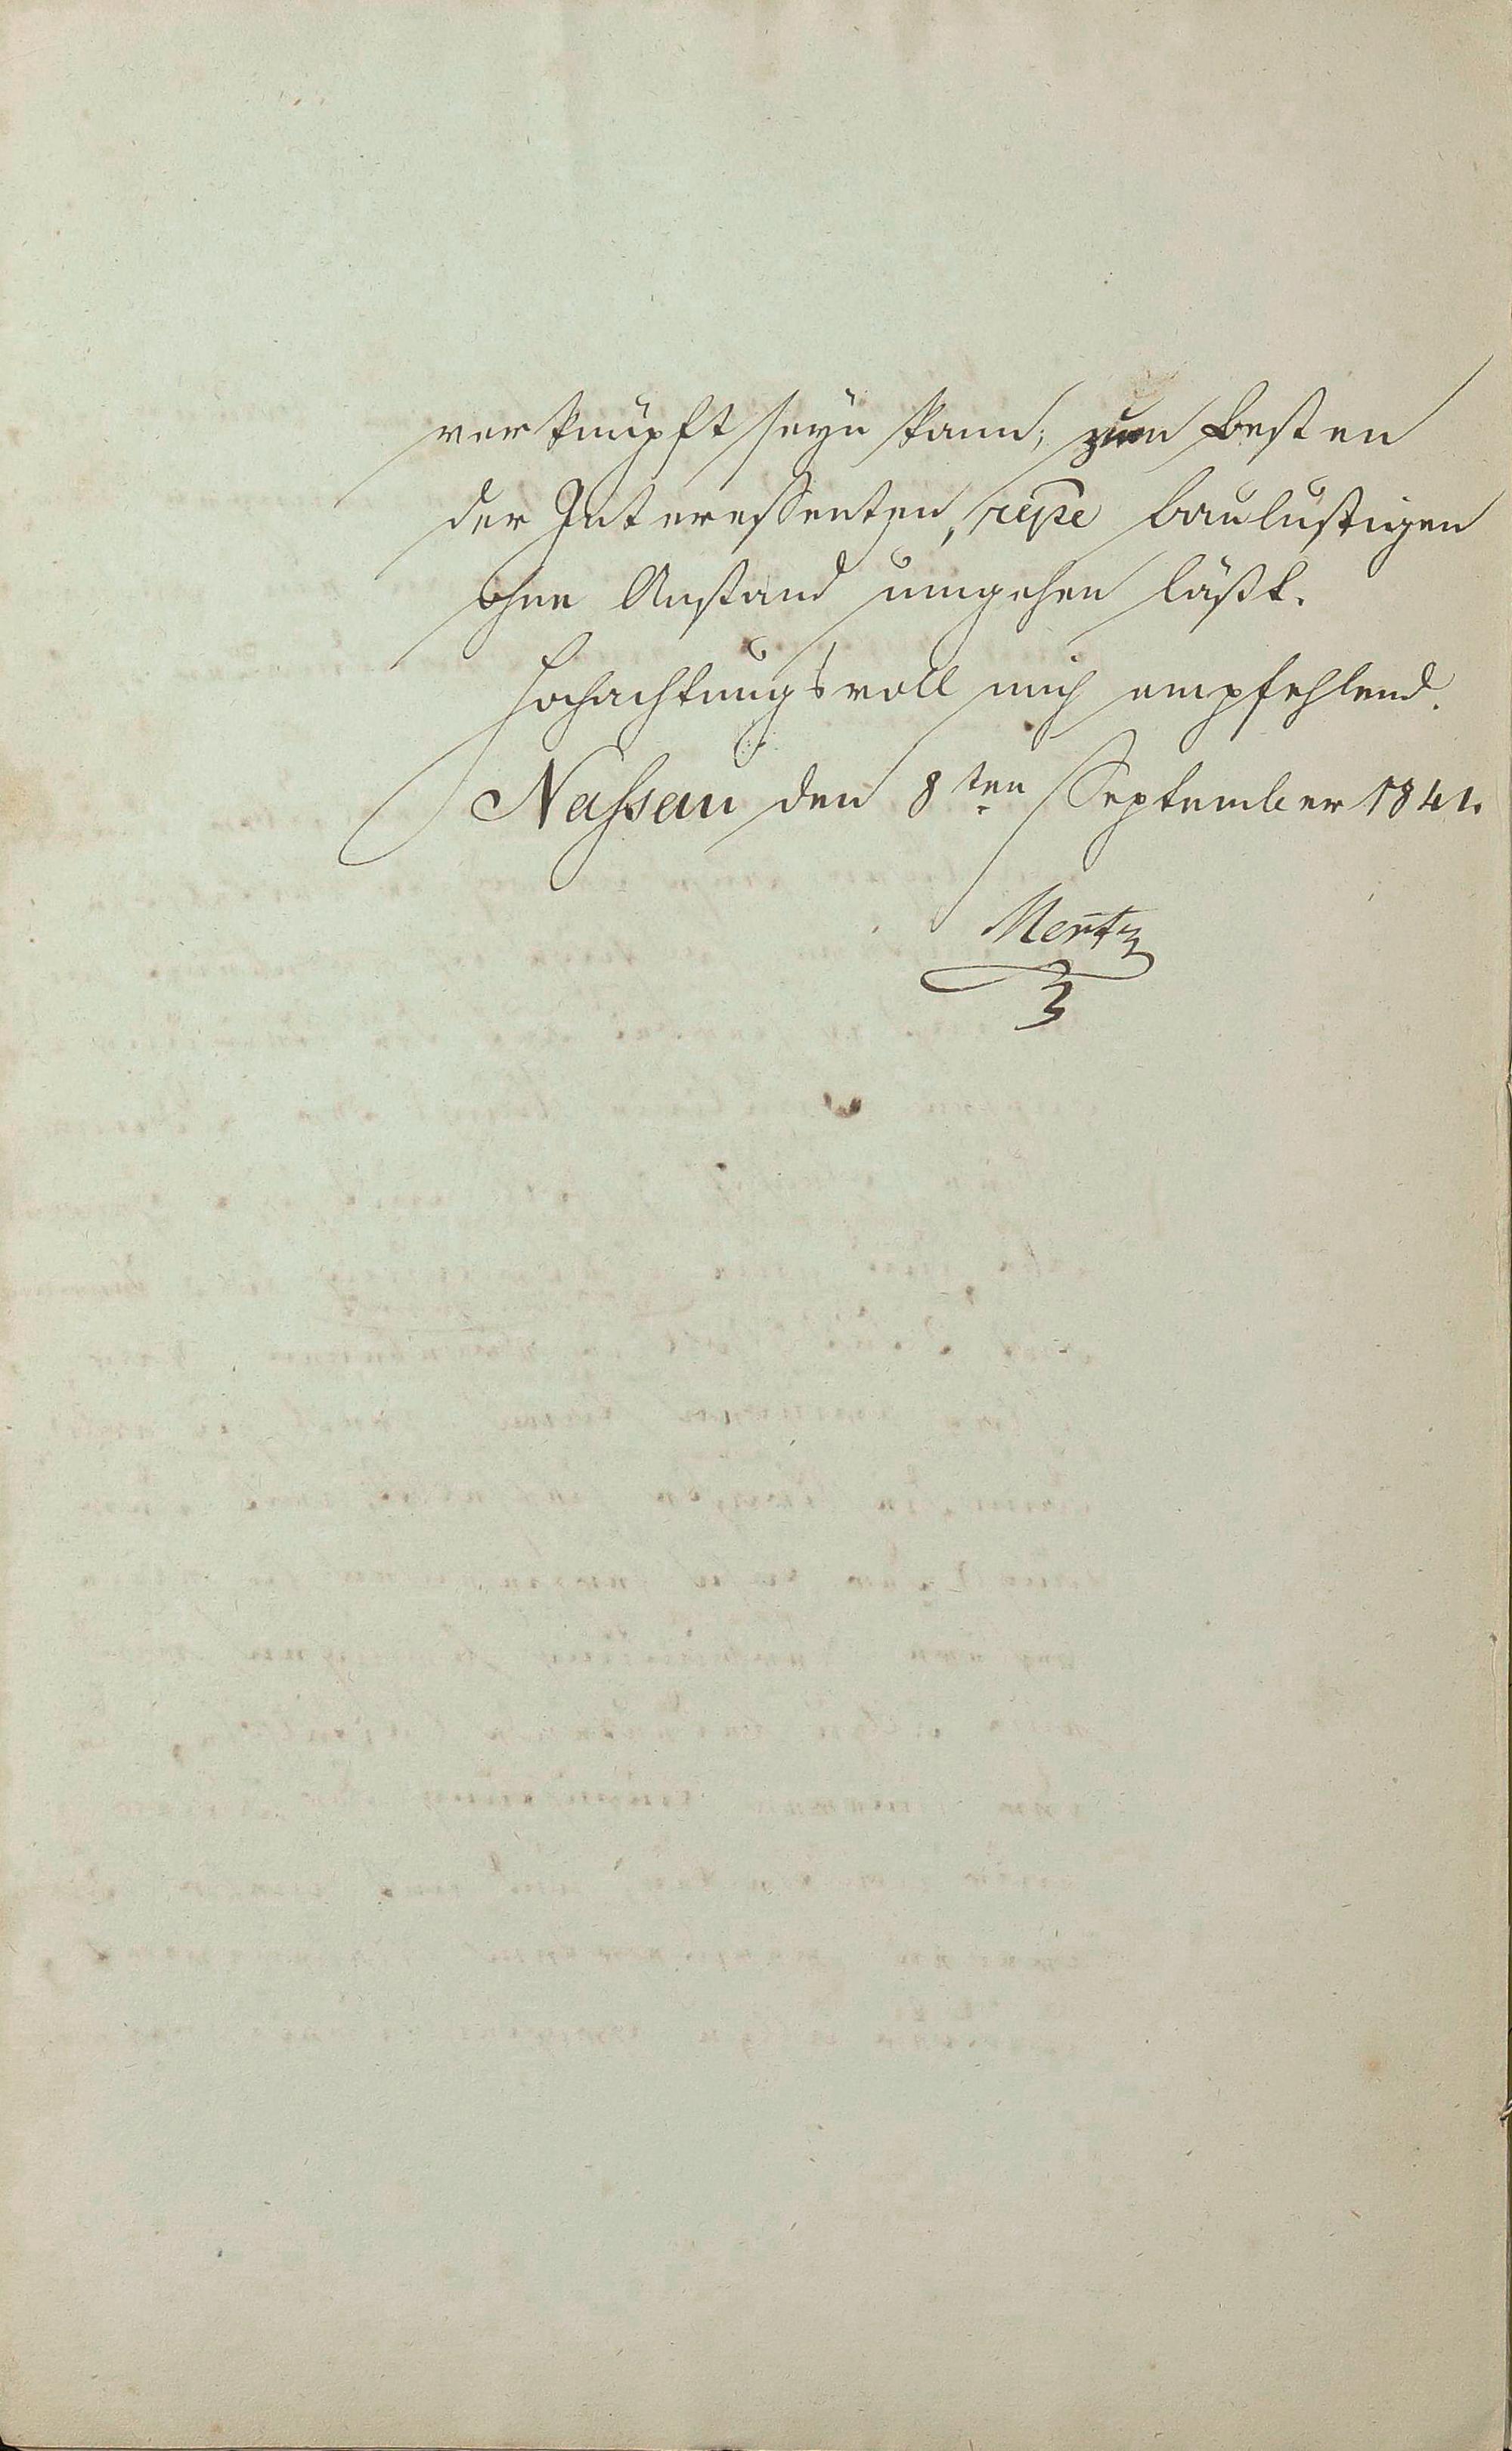 verknüpft seyn kann, zum besten
der Interessenten, respe baulustigen
ohne Anstand umgehen läßt.
Hochachtungsvoll mich empfehlend.
Nassau den 8ten September 1841.
Mertz